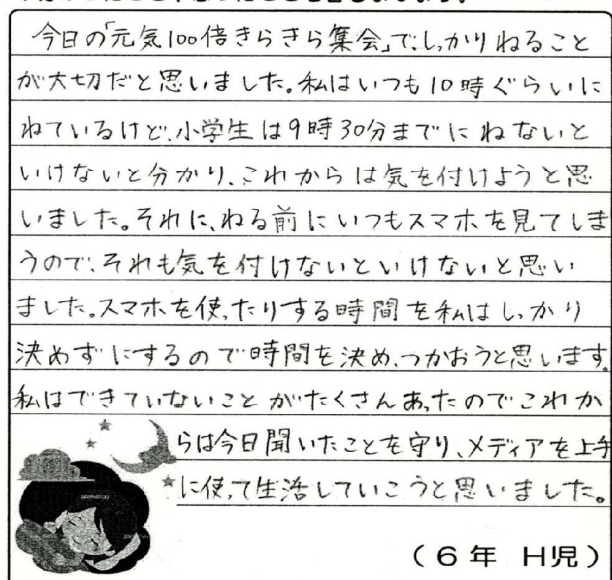 今日の「元気100倍きらきら集会」で、しっかりねること
が大切だと思いました。私はいつも10時ぐらいに
ねているけど、小学生は9時30分までにねないと
いけないと分かり、これからは気を付けようと思
いました。それに、ねる前にいつもスマホを見てしま
うので、それも気を付けないといけないと思い
ました。スマホを使ったりする時間を私はしっかり
決めずにするので時間を決め、つかおうと思います。
私はできていないことがたくさんあったのでこれか
らは今日聞いたことを守り、メディアを上手
に使って生活していこうと思いました。
(6年 H児)